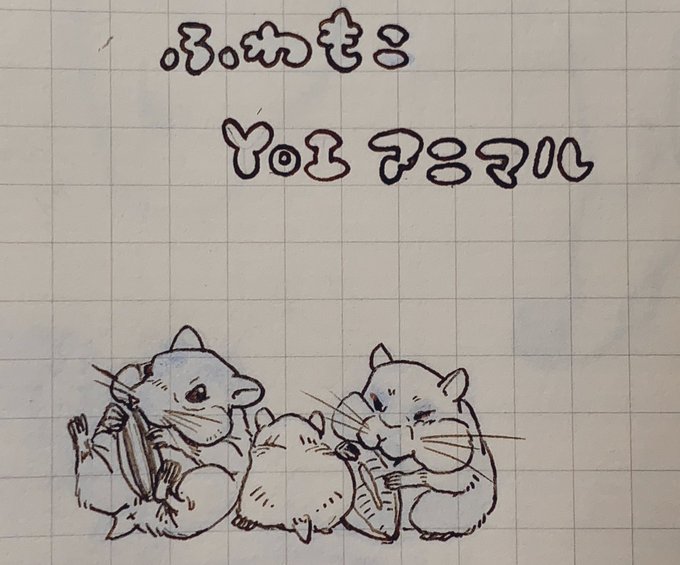 ふわもこ
YOI アニマル